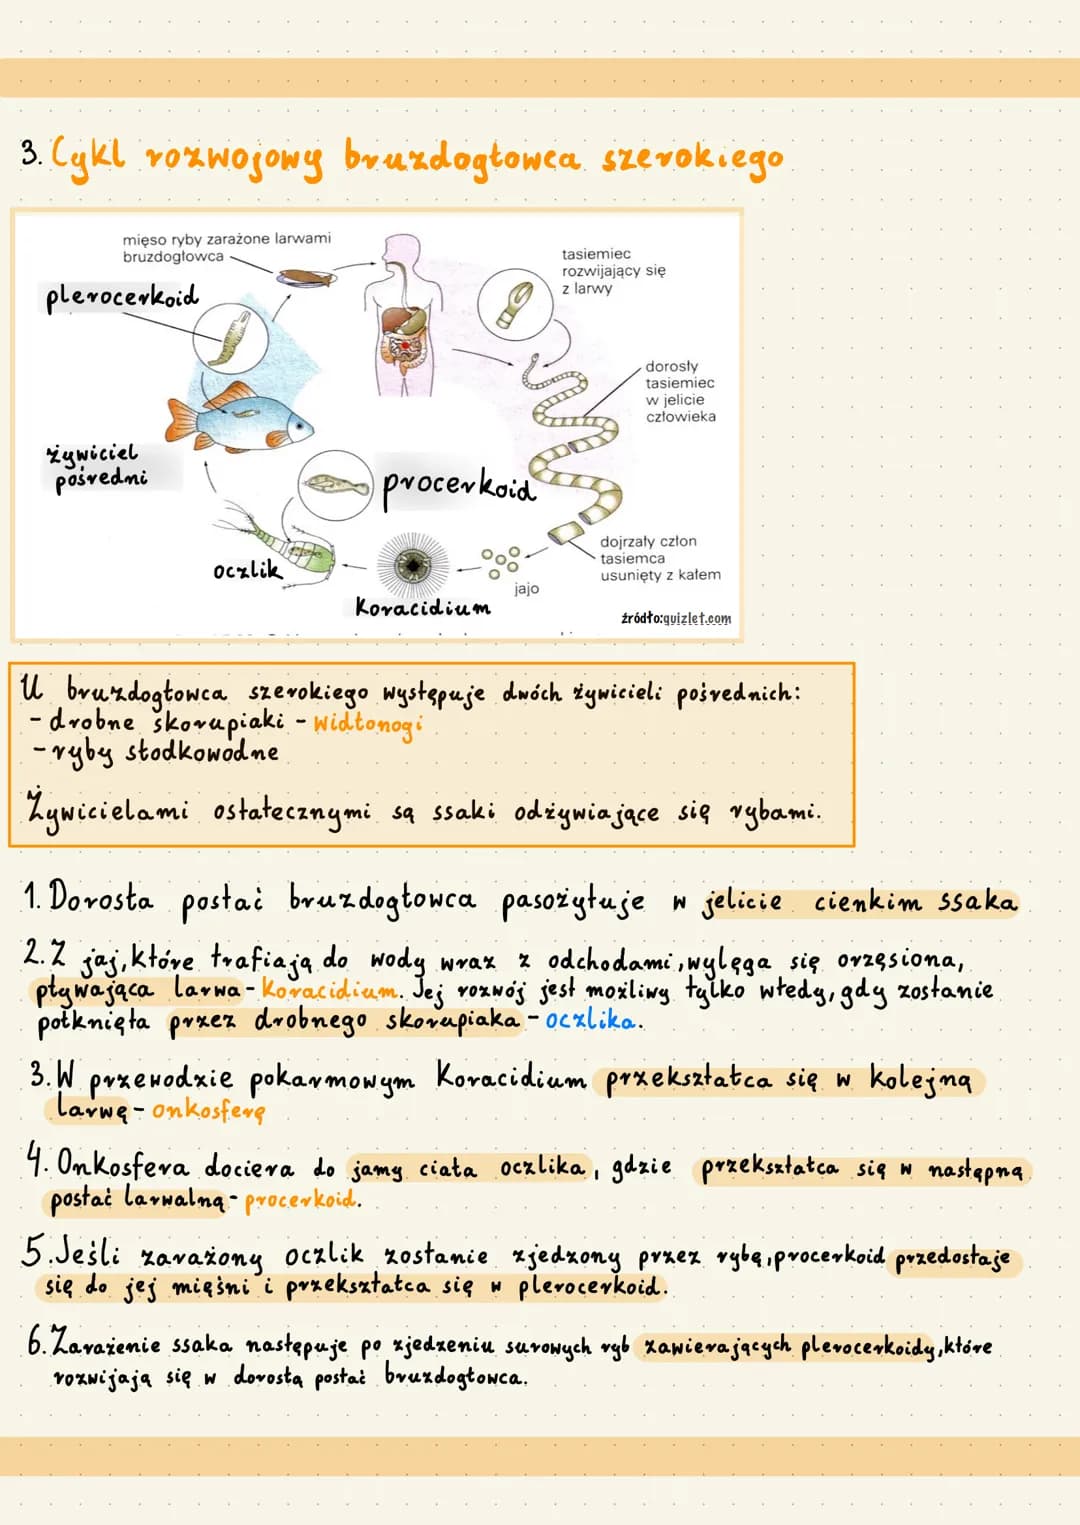 3. Cykl rozwojowy bruzdogłowca szerokiego
mięso ryby zarażone larwami
bruzdogłowca
plerocerkoid
tasiemiec
rozwijający się
z larwy
dorosły
tasiemiec
w jelicie
człowieka
żywiciel
pośredni
procerkoid
oczlik
Koracidium
jajo
dojrzały człon
tasiemca
usunięty z kałem
źródło:quizlet.com
U bruzdogłowca szerokiego występuje dwóch żywicieli pośrednich:
- drobne skorupiaki - widłonogi
- ryby słodkowodne
Żywicielami ostatecznymi są ssaki odżywiające się rybami.
1. Dorosła postać bruzdogłowca pasożytuje w jelicie cienkim ssaka
2. Z jaj, które trafiają do wody wraz z odchodami, wylęga się orzęsiona,
pływająca larwa - Koracidium. Jej rozwój jest możliwy tylko wtedy, gdy zostanie
połknięta przez drobnego skorupiaka - oczlika.
3. W przewodzie pokarmowym Koracidium przekształca się w kolejną
larwę - onkosferę
4. Onkosfera dociera do jamy ciała oczlika, gdzie przekształca się w następną
postać larwalną - procerkoid.
5. Jeśli zarażony oczlik zostanie zjedzony przez rybę, procerkoid przedostaje
się do jej mięśni i przekształca się w plerocerkoid.
6. Zarażenie ssaka następuje po zjedzeniu surowych ryb zawierających plerocerkoidy, które
rozwijają się w dorosłą postać bruzdogłowca.